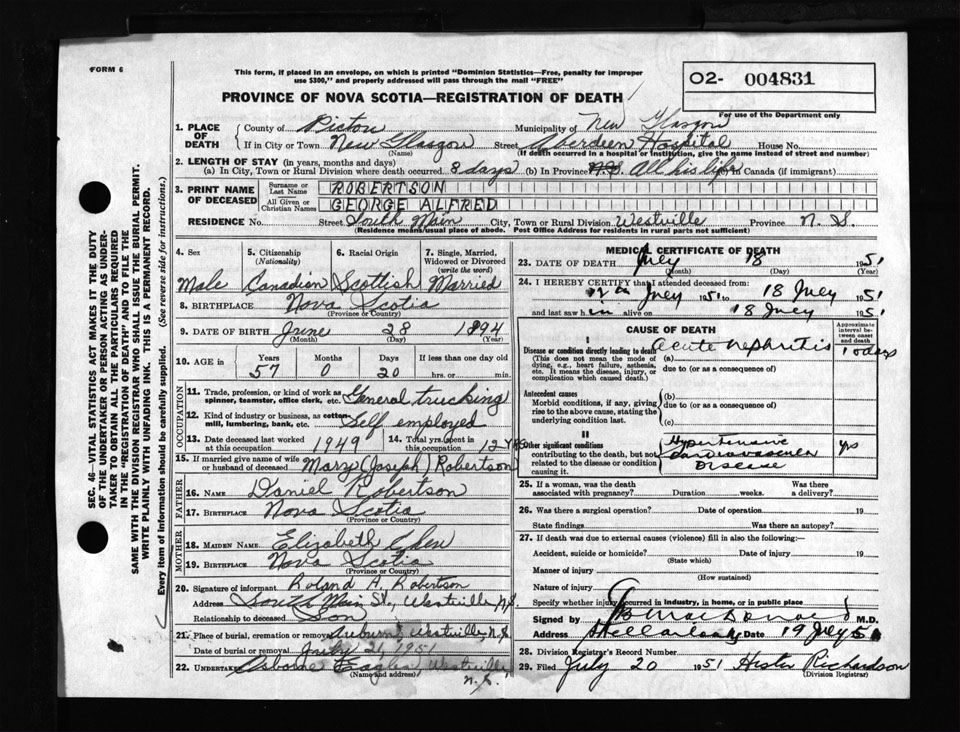 FORM 6
This form, if placed in an envelope, on which is printed "Dominion Statistics—Free, penalty for improper
use $300," and properly addressed will pass through the mail "FREE"
02- 004831
For use of the Department only
PROVINCE OF NOVA SCOTIA—REGISTRATION OF DEATH
1. PLACE OF DEATH
County of Pictou Municipality of New Glasgow
If in City or Town New Glasgow Street Aberdeen Hospital House No.
(Name) (If death occurred in a hospital or institution, give the name instead of street and number)
2. LENGTH OF STAY (in years, months and days)
(a) In City, Town or Rural Division where death occurred 8 days (b) In Province N.S. All his life (c) In Canada (if immigrant)
3. PRINT NAME OF DECEASED
Surname or Last Name ROBERTSON
All Given or Christian Names GEORGE ALFRED
RESIDENCE No. Street South Main City, Town or Rural Division Westville Province N.S.
(Residence means usual place of abode. Post Office Address for residents in rural parts not sufficient)
4. Sex Male
5. Citizenship (Nationality) Canadian
6. Racial Origin Scottish
7. Single, Married, Widowed or Divorced (write the word) Married
8. BIRTHPLACE Nova Scotia
(Province or Country)
9. DATE OF BIRTH June 28 1894
(Month) (Day) (Year)
10. AGE IN Years 57 Months 0 Days 20 If less than one day hrs. or min.
OCCUPATION
11. Trade, profession, or kind of work as spinner, teamster, office clerk, etc. General trucking
12. Kind of industry or business, as cotton-mill, lumbering, bank, etc. Self employed
13. Date deceased last worked at this occupation 1949
14. Total yrs. spent in this occupation 12 YRS
15. If married give name of wife or husband of deceased Mary (Joseph) Robertson
FATHER
16. NAME Daniel Robertson
17. BIRTHPLACE Nova Scotia
(Province or Country)
MOTHER
18. MAIDEN NAME Elizabeth
19. BIRTHPLACE Nova Scotia
(Province or Country)
20. Signature of informant Roland A. Robertson
Address South Main St., Westville N.S.
Relationship to deceased Son
21. Place of burial, cremation or removal Auburn, Westville, N.S.
Date of burial or removal July 21, 1951
22. UNDERTAKER Osborne Eagles, Westville
(Name and address) N.S.
MEDICAL CERTIFICATE OF DEATH
23. DATE OF DEATH July 18 1951
(Month) (Day) (Year)
24. I HEREBY CERTIFY that I attended deceased from:
12 July 1951 to 18 July 1951
and last saw him alive on 18 July 1951
CAUSE OF DEATH
Approximate interval between onset and death
I
Disease or condition directly leading to death (a) Acute nephritis 10 days
(This does not mean the mode of dying, e.g., heart failure, asthenia, etc. It means the disease, injury, or complication which caused death.)
due to (or as a consequence of)
Antecedent causes
Morbid conditions, if any, giving rise to the above cause, stating the underlying condition last.
(b)
due to (or as a consequence of)
(c)
II
Other significant conditions
contributing to the death, but not related to the disease or condition causing it.
Hypertensive Cardiovascular Disease yrs
25. If a woman, was the death associated with pregnancy? Duration weeks. Was there a delivery?
26. Was there a surgical operation? Date of operation 19
State findings Was there an autopsy?
27. If death was due to external causes (violence) fill in also the following:—
Accident, suicide or homicide? Date of injury 19
(State which)
Manner of injury
(How sustained)
Nature of injury
Specify whether injury occurred in industry, in home, or in public place
Signed by M.D.
Address Stellarton Date 19 July 51
28. Division Registrar's Record Number
29. Filed July 20 1951 Hester Richardson
(Division Registrar)
SEC. 46—VITAL STATISTICS ACT MAKES IT THE DUTY
OF THE UNDERTAKER OR PERSON ACTING AS UNDER-
TAKER TO OBTAIN ALL THE PARTICULARS REQUIRED
IN THE "REGISTRATION OF DEATH" AND TO FILE THE
SAME WITH THE DIVISION REGISTRAR WHO SHALL ISSUE THE BURIAL PERMIT.
WRITE PLAINLY WITH UNFADING INK. THIS IS A PERMANENT RECORD.
Every item of information should be carefully supplied. (See reverse side for instructions.)